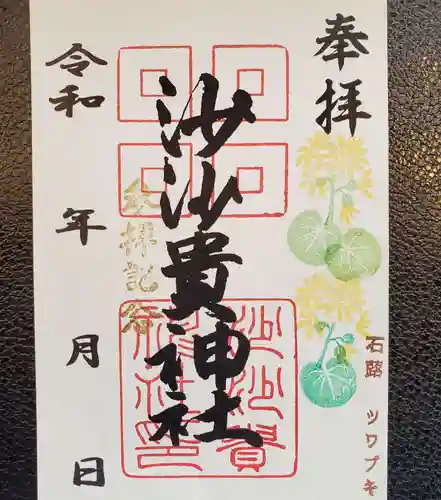 奉拝
沙沙貴神社
令和 年 月 日
参拝記念
沙沙貴神社印
石蕗 ツワブキ